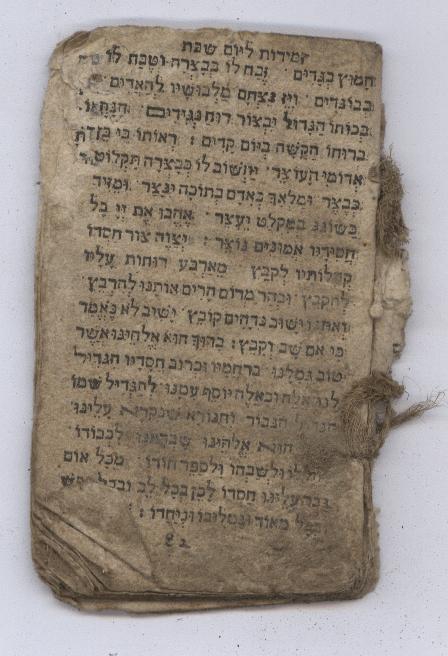 זמירות ליום שבת
חמוץ בגדים : זבח לו בבצרה וטבח לו
בבוגדים : ויז נצחם מלבושיו להאדים
בכוחו הגדול יבצור רוח נגידים:
ברוחו הקשה ביום קדים : ראותו כי
אדומי העוצר . יחשוב לו כבצרה תקלוט
כבצר ומלאך כאדם בתוכה ינצר . ומזיד
כשוגג במקלט יעצר . אהבו את יי כל
חסידיו אמונים נוצר : יצוה צור חסדו
קהלותיו לקבץ מארבע רוחות עדיו
להקבץ . ובהר מרום הרים אותנו להרבץ
ואתנו ישוב נדחים קובץ . ישיב לא נאמר
כי אם שב וקבץ : ברוך הוא אלהינו אשר
טוב גמלנו ברחמיו וכרוב חסדיו הגדיל
לנו אלה וכאלה יוסף עמנו להגדיל שמו
הגדול הגבור והנורא שנקרא עלינו
הוא אלהינו שבראנו לכבודו
ולשבחו ולספר הודו . מכל אום
גבר עלינו חסדו לכן בכל לב ובכל נפש
ובכל מאוד נמליכו ונייחדו :